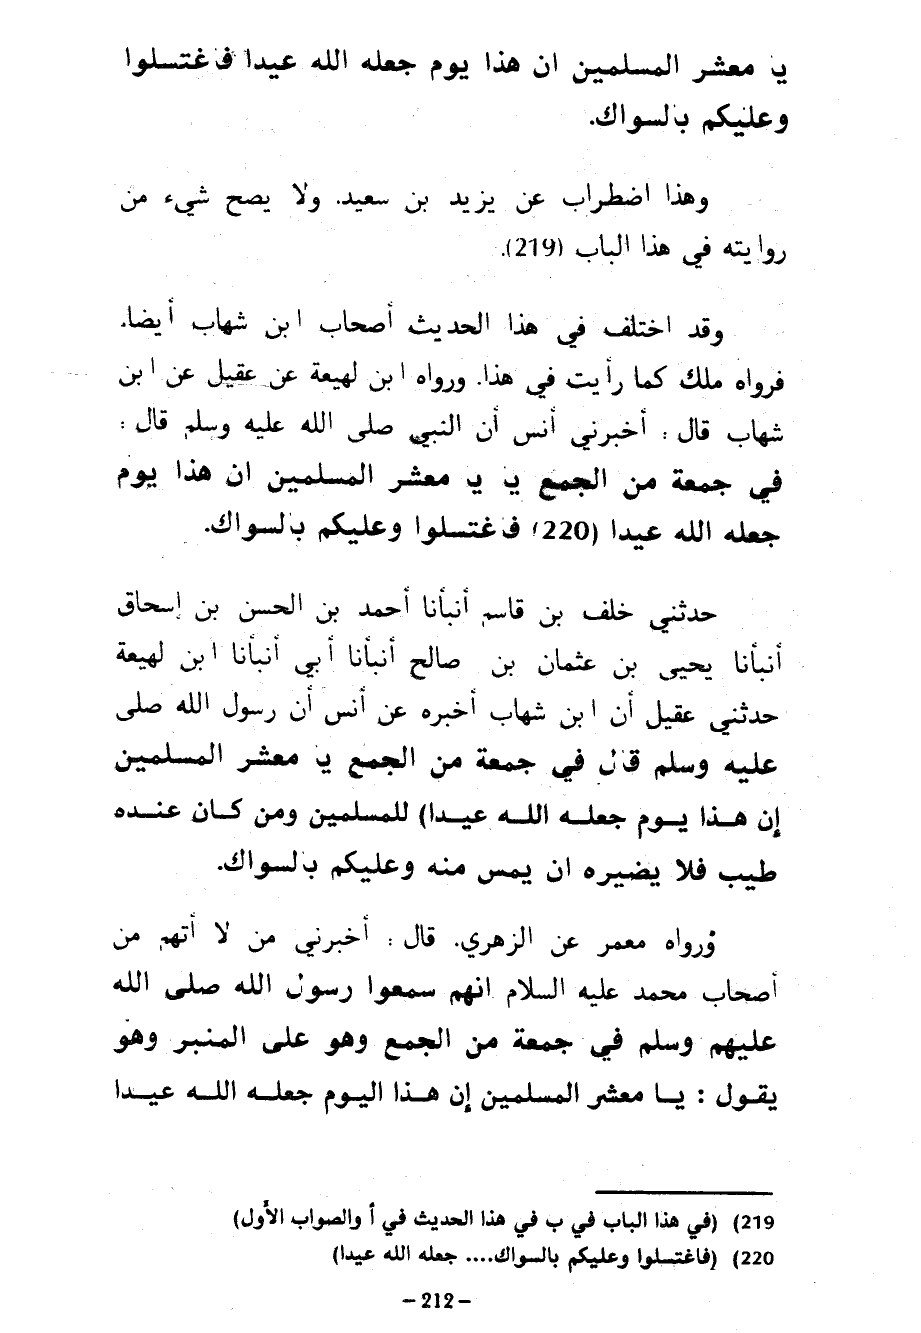 يا معشر المسلمين ان هذا يوم جعله الله عيدا فاغتسلوا
وعليكم بالسواك.
وهذا اضطراب عن يزيد بن سعيد. ولا يصح شيء من
روايته في هذا الباب (219).
وقد اختلف في هذا الحديث أصحاب ابن شهاب أيضا.
فرواه ملك كما رأيت في هذا. ورواه ابن لهيعة عن عقيل عن ابن
شهاب قال : أخبرني أنس أن النبي صلى الله عليه وسلم قال :
في جمعة من الجمع يا يا معشر المسلمين ان هذا يوم
جعله الله عيدا (220) فاغتسلوا وعليكم بالسواك.
حدثني خلف بن قاسم أنبأنا أحمد بن الحسن بن إسحاق
أنبأنا يحيى بن عثمان بن صالح أنبأنا أبي أنبأنا ابن لهيعة
حدثني عقيل أن ابن شهاب أخبره عن أنس أن رسول الله صلى
عليه وسلم قال في جمعة من الجمع يا معشر المسلمين
إن هذا يوم جعله الله عيدا) للمسلمين ومن كان عنده
طيب فلا يضيره ان يمس منه وعليكم بالسواك.
ورواه معمر عن الزهري. قال : أخبرني من لا أتهم من
أصحاب محمد عليه السلام انهم سمعوا رسول الله صلى الله
عليهم وسلم في جمعة من الجمع وهو على المنبر وهو
يقول : يا معشر المسلمين إن هذا اليوم جعله الله عيدا
219) (في هذا الباب في ب في هذا الحديث في أ والصواب الأول)
220) (فاغتسلوا وعليكم بالسواك.... جعله الله عيدا)
- 212 -